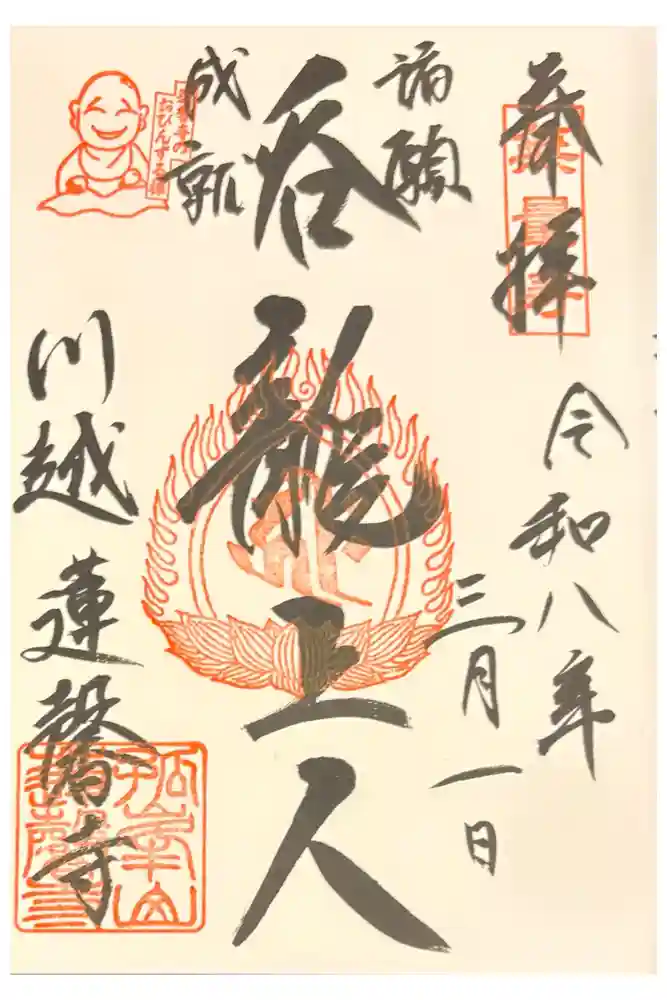 奉拝
令和八年
三月一日
諸願
成就
呑龍上人
川越 蓮馨寺
おびんずる様